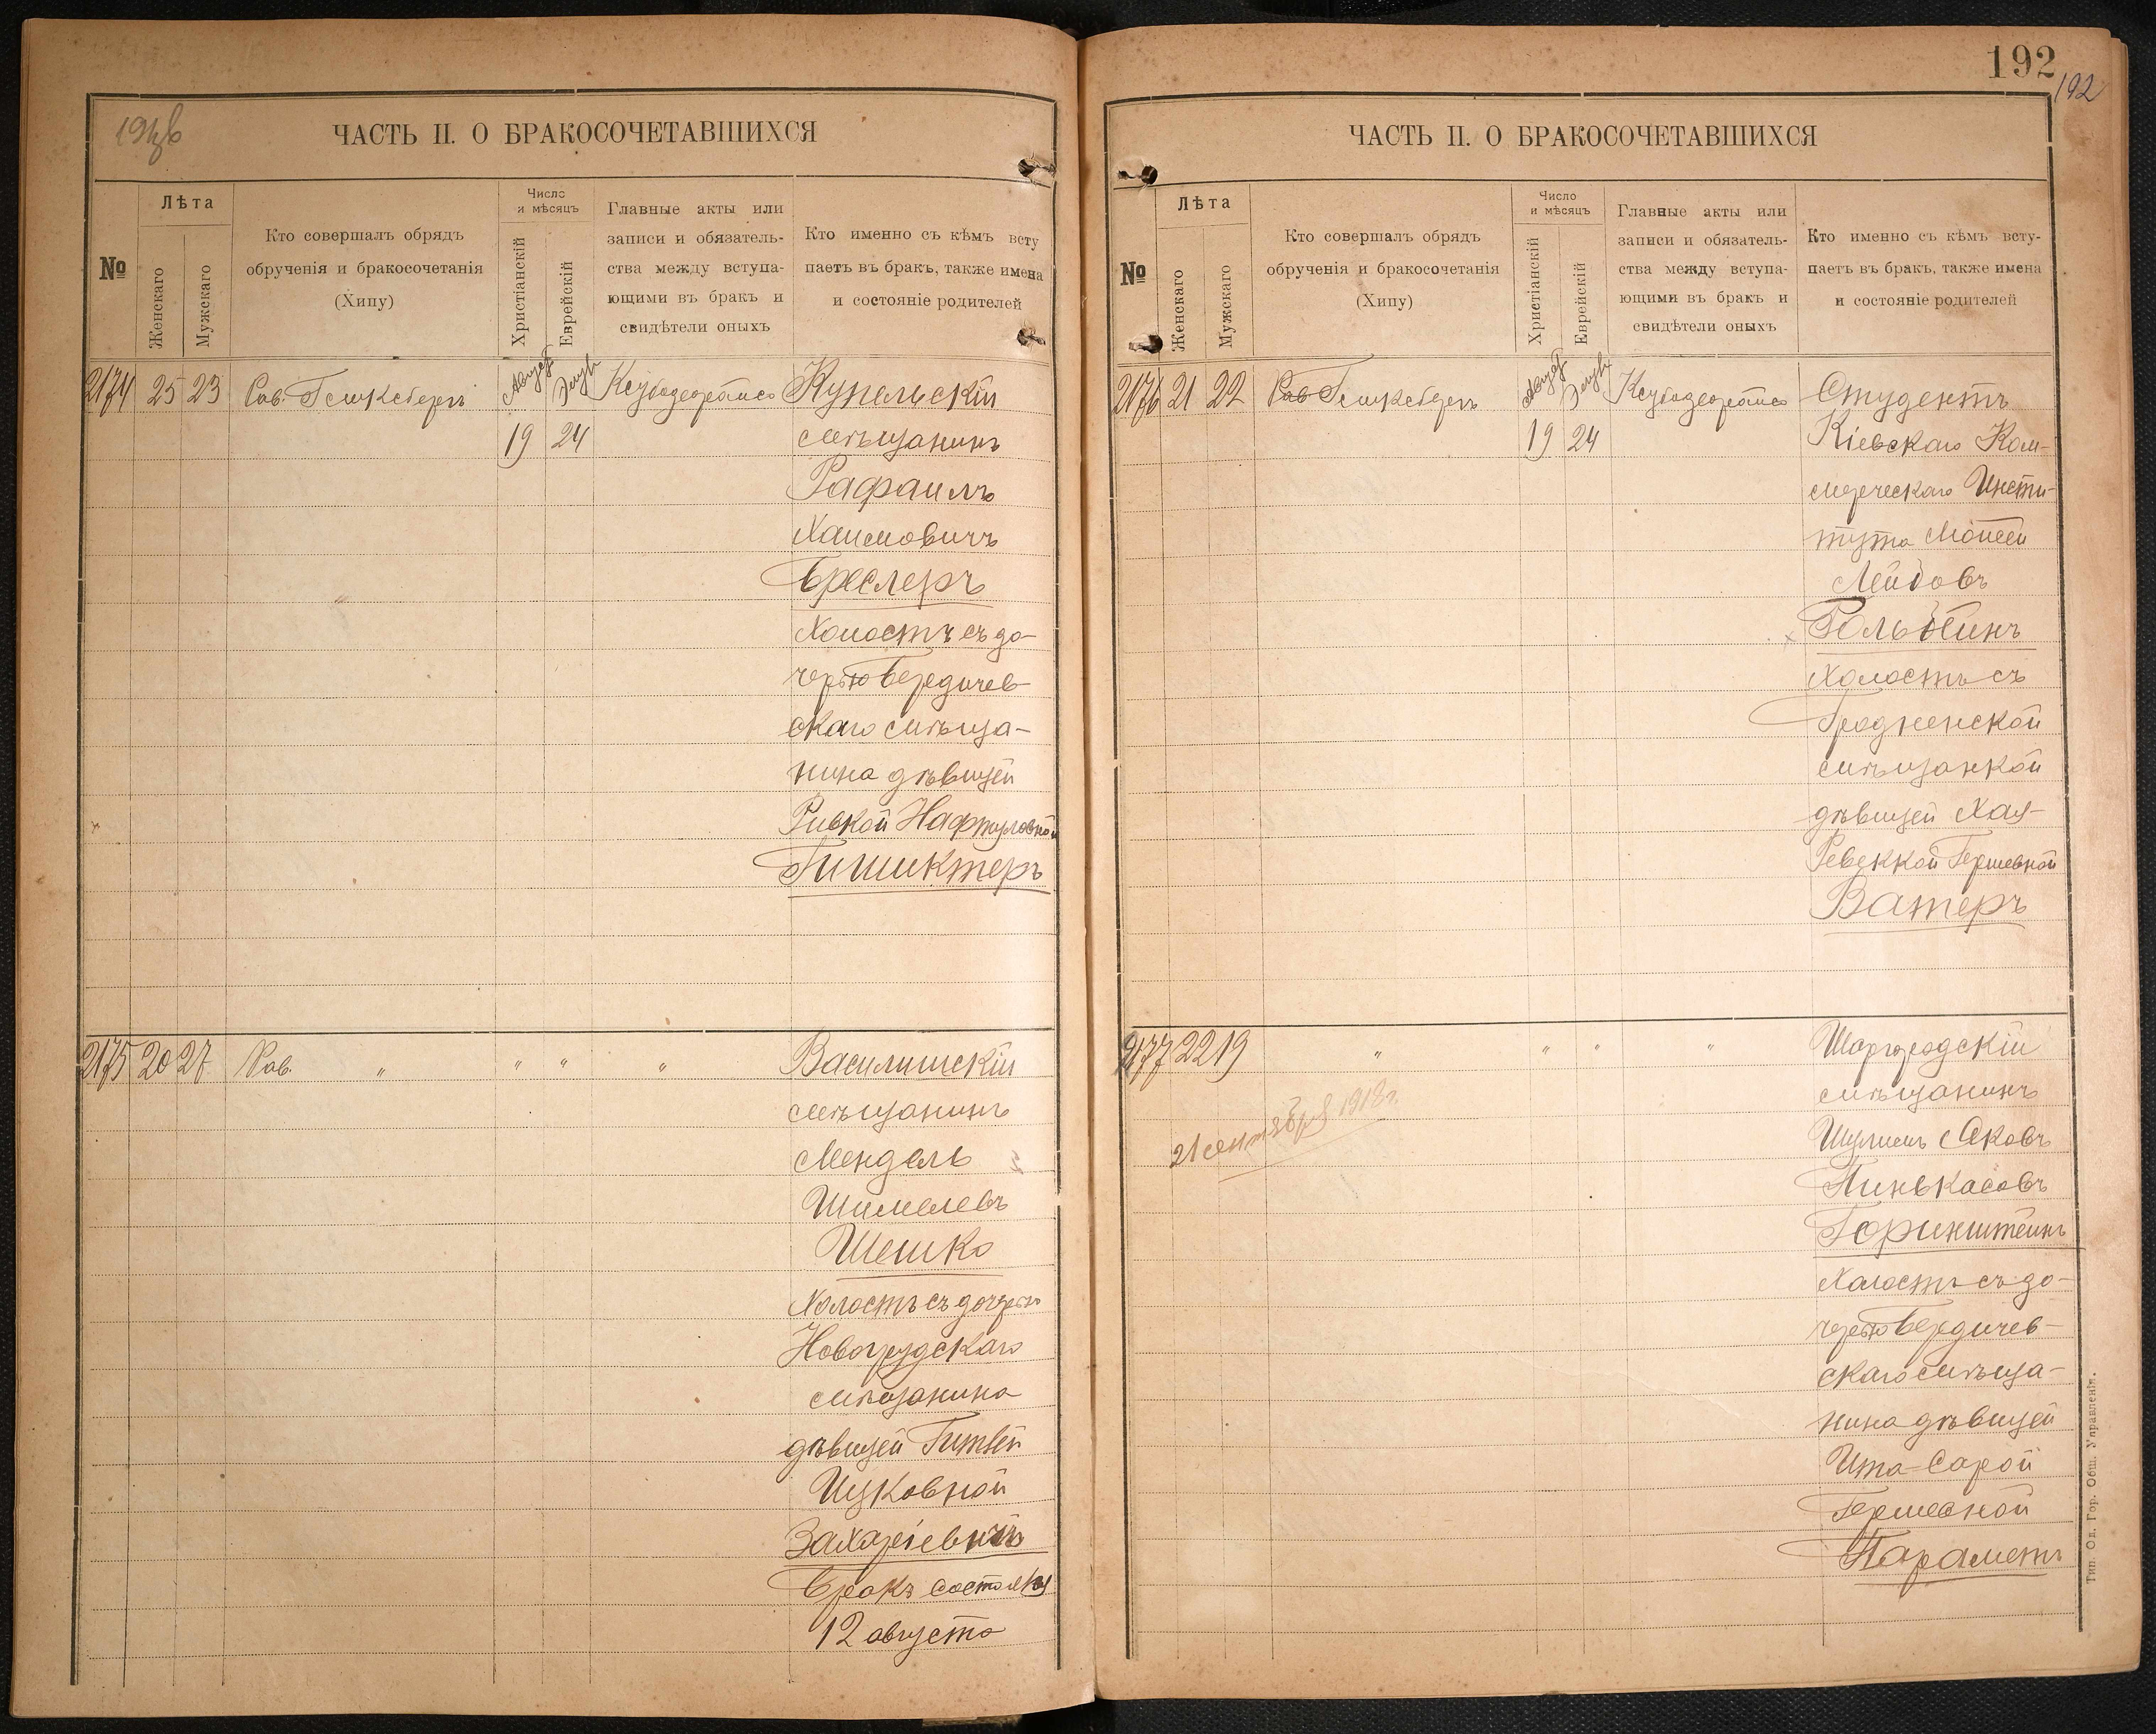 ЧАСТЬ II. О БРАКОСОЧЕТАВШИХСЯ
№
Лѣта
Женскаго
Мужскаго
Кто совершалъ обрядъ
обрученія и бракосочетанія
(Хипу)
Число
и мѣсяцъ
Христіанскій
Еврейскій
Главные акты или
записи и обязатель-
ства между вступа-
ющими въ бракъ и
свидѣтели оныхъ
Кто именно съ кѣмъ всту
паетъ въ бракъ, также имена
и состояніе родителей
2174 25 23 Рав. Август Элуль Купельскій
19 24 мѣщанинъ
Рафаилъ
Хаимовичъ
Бреслеръ
Холостъ съ до-
черью Бердичев-
скаго мѣща-
нина дѣвицей
Ривкой Нафтуловной
Гишиктеръ
2175 20 27 Рав. " " " " Василишскій
мѣщанинъ
Мендель
Шимелевъ
Шешко
Холостъ съ дочерью
Новогрудскаго
мѣщанина
дѣвицей Гитлей
Ицковной
Захаріевичъ
Бракъ состоялся
12 августа
192
192
ЧАСТЬ II. О БРАКОСОЧЕТАВШИХСЯ
№
Лѣта
Женскаго
Мужскаго
Кто совершалъ обрядъ
обрученія и бракосочетанія
(Хипу)
Число
и мѣсяцъ
Христіанскій
Еврейскій
Главные акты или
записи и обязатель-
ства между вступа-
ющими въ бракъ и
свидѣтели оныхъ
Кто именно съ кѣмъ всту-
паетъ въ бракъ, также имена
и состояніе родителей
2176 21 22 Рав Август Элуль Студентъ
19 24 Кіевскаго Ком-
мерческаго Инсти-
тута Моисей
Лейбовъ
Холостъ съ
Гродненской
мѣщанкой
дѣвицей Хая-
Ревеккой Гершевной
Ватеръ
2177 22 19 " " " " Шаргородскій
мѣщанинъ
21 сентября 1918 г.
Шулимъ Яковъ
Пинькасовъ
Горинштейнъ
Холостъ съ до-
черью Бердичев-
скаго мѣща-
нина дѣвицей
Ита-Сарой
Гершевной
Параметъ
Тип. Од. Гор. Общ. Управленія.